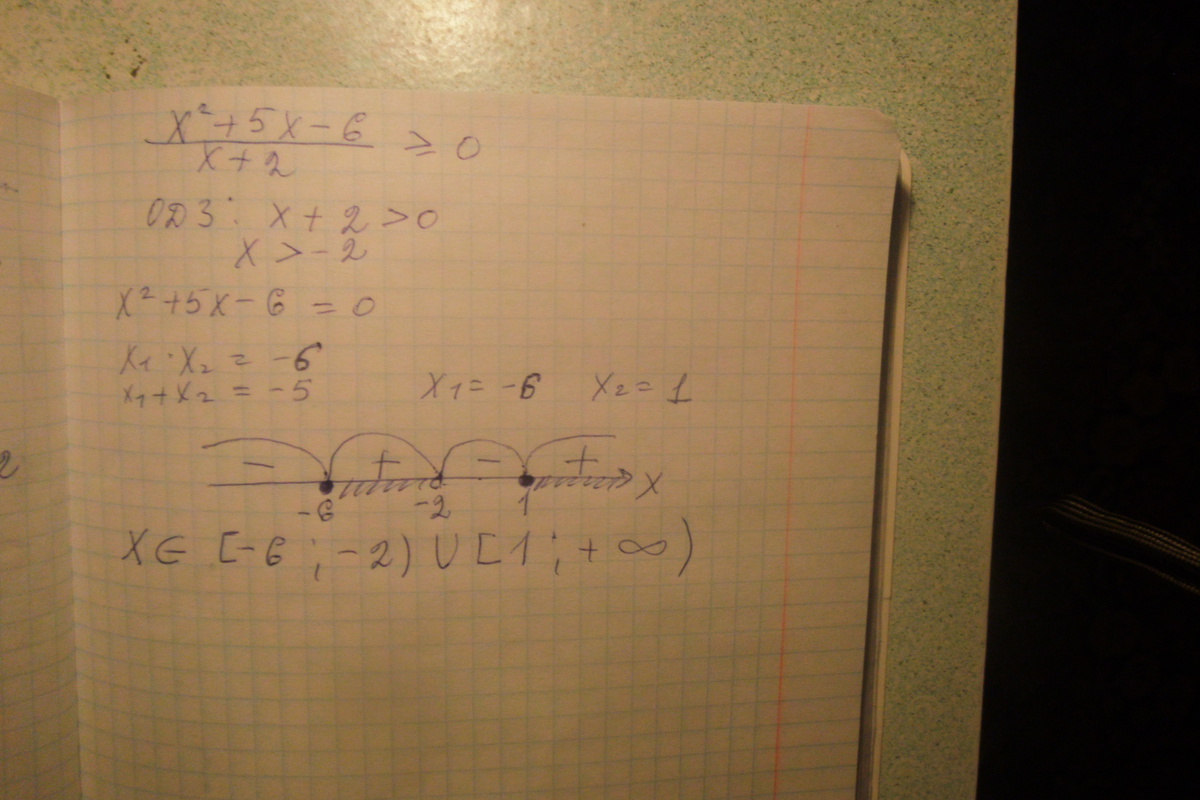 x²+5x-6
x+2
≥ 0
ОДЗ: x+2>0
x>-2
x²+5x-6=0
x₁·x₂=-6
x₁+x₂=-5 x₁=-6 x₂=1
- + - +
-6 -2 1 x
x∈[-6;-2)∪[1;+∞)
2